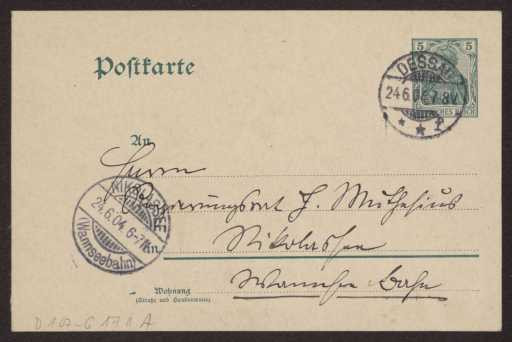 Postkarte
5 5
DEUTSCHES REICH
DESSAU
24.6.04.7-8V.
* * 1
An
Herrn
Regierungsrat H. Muthesius
NIKOLASSEE
24.6.04 6-7N.
(Wannseebahn)
in
Nikolassee
Wannsee-Bahn
Wohnung
(Straße und Hausnummer)